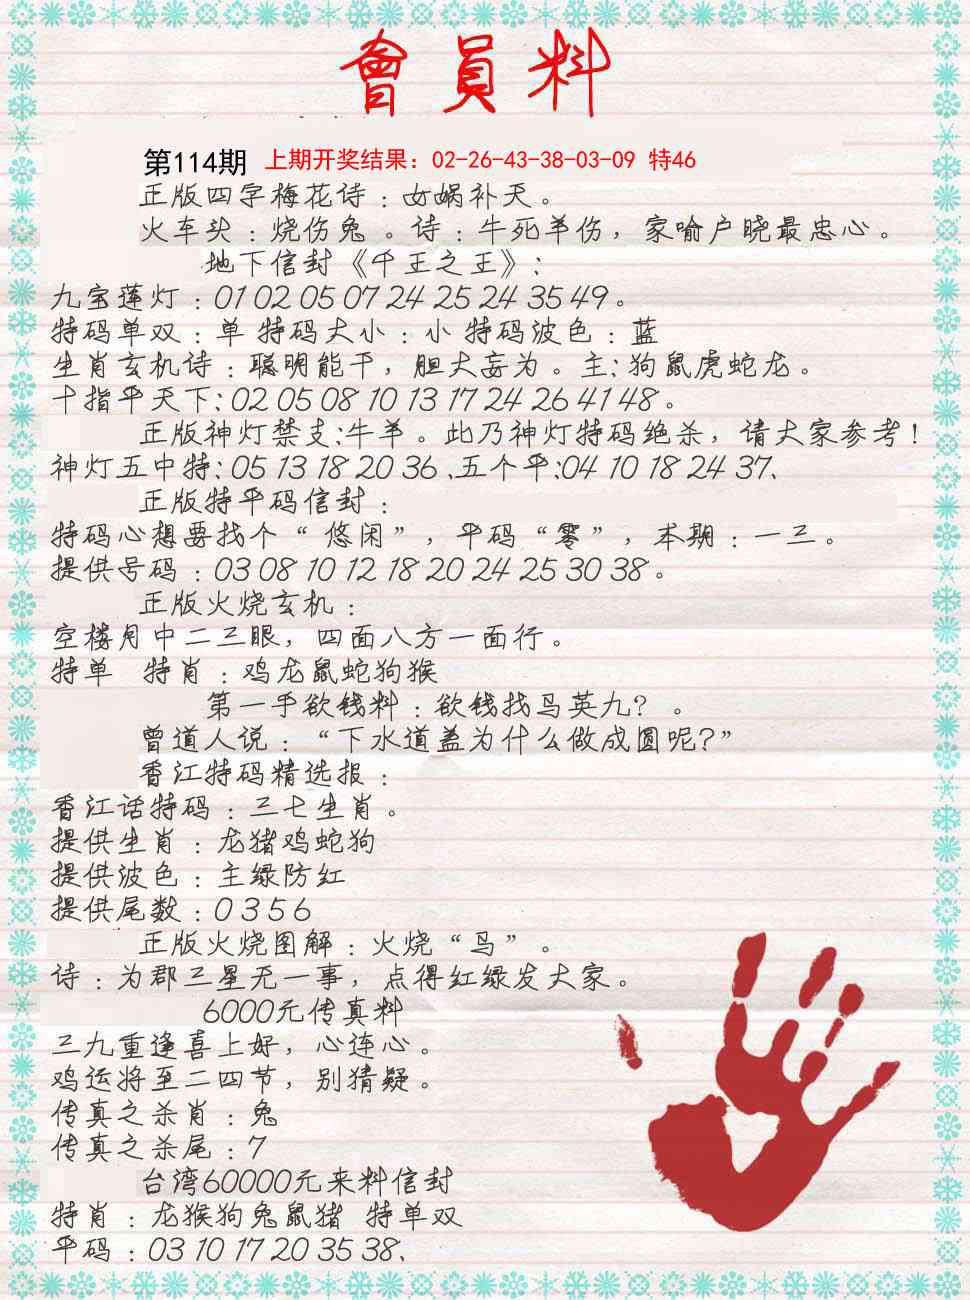 會員料
第114期 上期开奖结果：02-26-43-38-03-09 特46
正版四字梅花诗：女娲补天。
火车头：烧伤兔。诗：牛死羊伤，家喻户晓最忠心。
地下信封《千王之王》：
九宝莲灯：01 02 05 07 24 25 24 35 49。
特码单双：单 特码大小：小 特码波色：蓝
生肖玄机诗：聪明能干，胆大妄为。主：狗鼠虎蛇龙。
十指平天下：02 05 08 10 13 17 24 26 41 48。
正版神灯禁支：牛羊。此乃神灯特码绝杀，请大家参考！
神灯五中特：05 13 18 20 36、五个平：04 10 18 24 37、
正版特平码信封：
特码心想要找个“悠闲”，平码“零”，本期：一三。
提供号码：03 08 10 12 18 20 24 25 30 38。
正版火烧玄机：
空楼月中二三眼，四面八方一面行。
特单 特肖：鸡龙鼠蛇狗猴
第一手欲钱料：欲钱找马英九？。
曾道人说：“下水道盖为什么做成圆呢？”
香江特码精选报：
香江话特码：三七生肖。
提供生肖：龙猪鸡蛇狗
提供波色：主绿防红
提供尾数：0 3 5 6
正版火烧图解：火烧“马”。
诗：为郡三星无一事，点得红绿发大家。
6000元传真料
三九重逢喜上好，心连心。
鸡运将至二四节，别猜疑。
传真之杀肖：兔
传真之杀尾：7
台湾60000元来料信封
特肖：龙猴狗兔鼠猪 特单双
平码：03 10 17 20 35 38、